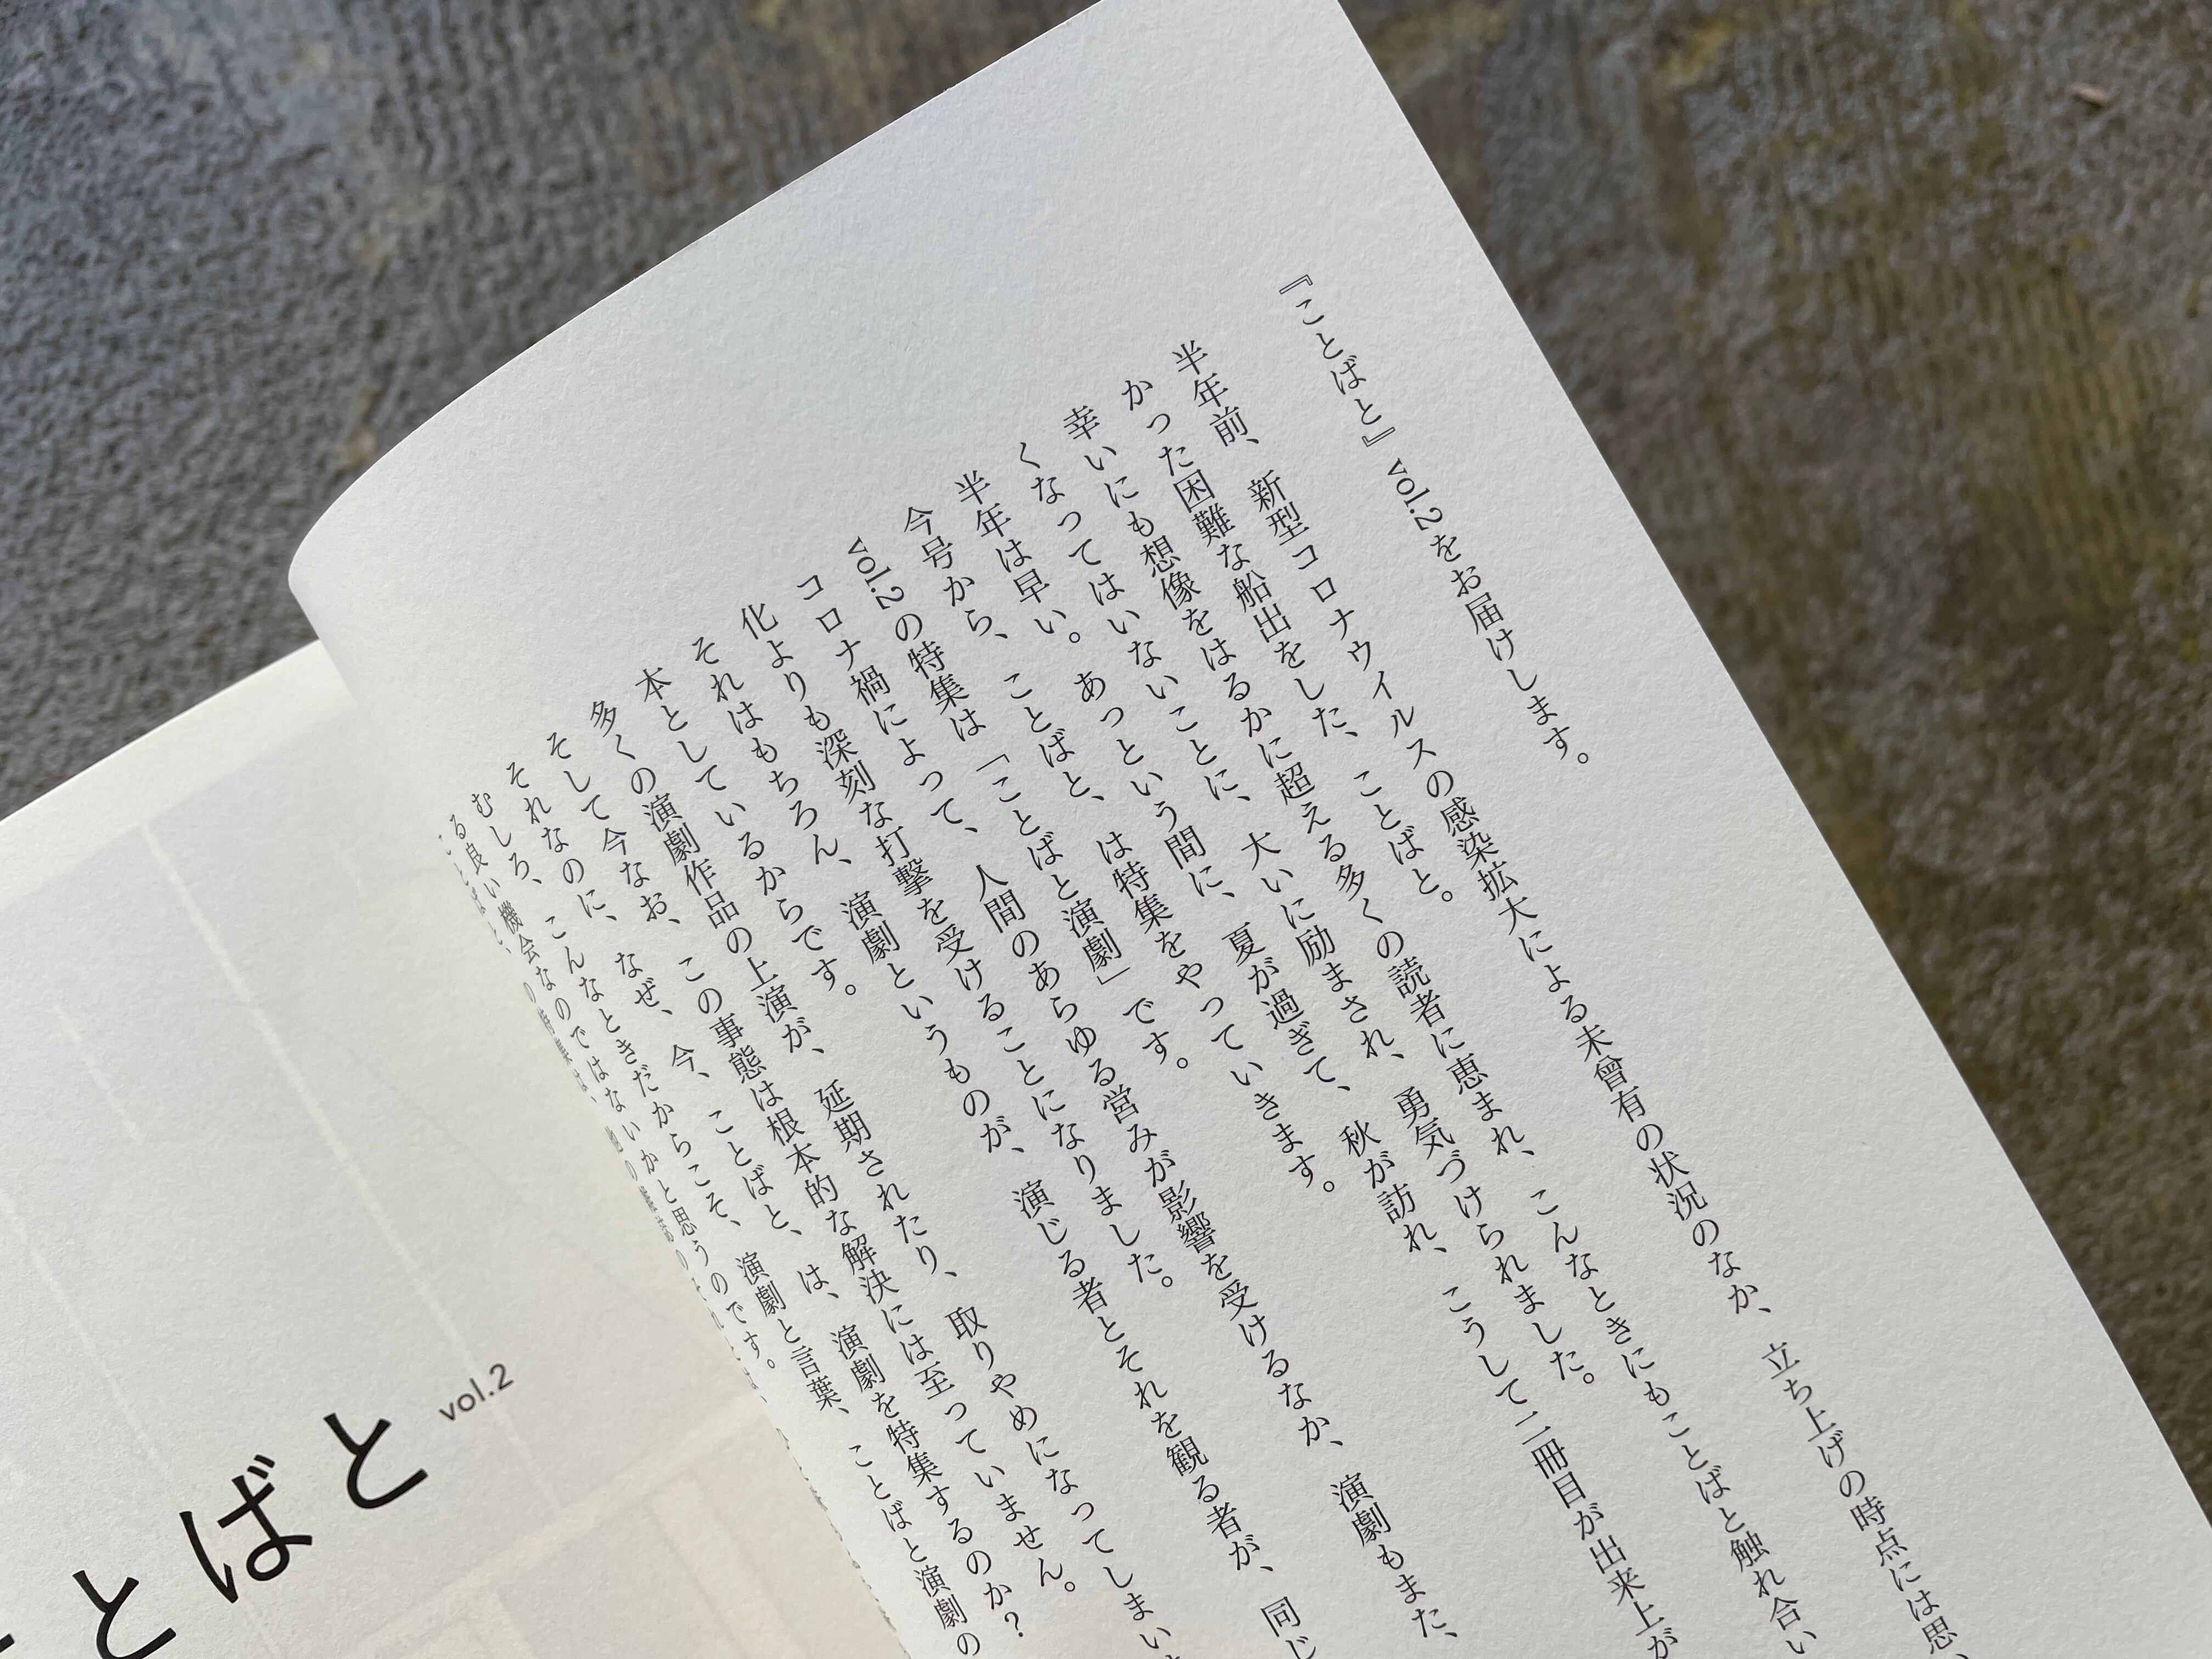 『ことばと』vol.2をお届けします。
半年前、新型コロナウイルスの感染拡大による未曾有の状況のなか、立ち上げの時点には思
かった困難な船出をした、ことばと。
幸いにも想像をはるかに超える多くの読者に恵まれ、こんなときにもことばと触れ合い
くなってはいないことに、大いに励まされ、勇気づけられました。
半年は早い。あっという間に、夏が過ぎて、秋が訪れ、こうして二冊目が出来上が
今号から、ことばと、は特集をやっていきます。
vol.2の特集は「ことばと演劇」です。
コロナ禍によって、人間のあらゆる営みが影響を受けるなか、演劇もまた、
化よりも深刻な打撃を受けることになりました。
それはもちろん、演劇というものが、演じる者とそれを観る者が、同じ
本としているからです。
多くの演劇作品の上演が、延期されたり、取りやめになってしまい
そして今なお、この事態は根本的な解決には至っていません。
それなのに、なぜ、今、ことばと、は、演劇を特集するのか？
むしろ、こんなときだからこそ、演劇と言葉、ことばと演劇の
る良い機会なのではないかと思うのです。
とばと
vol.2